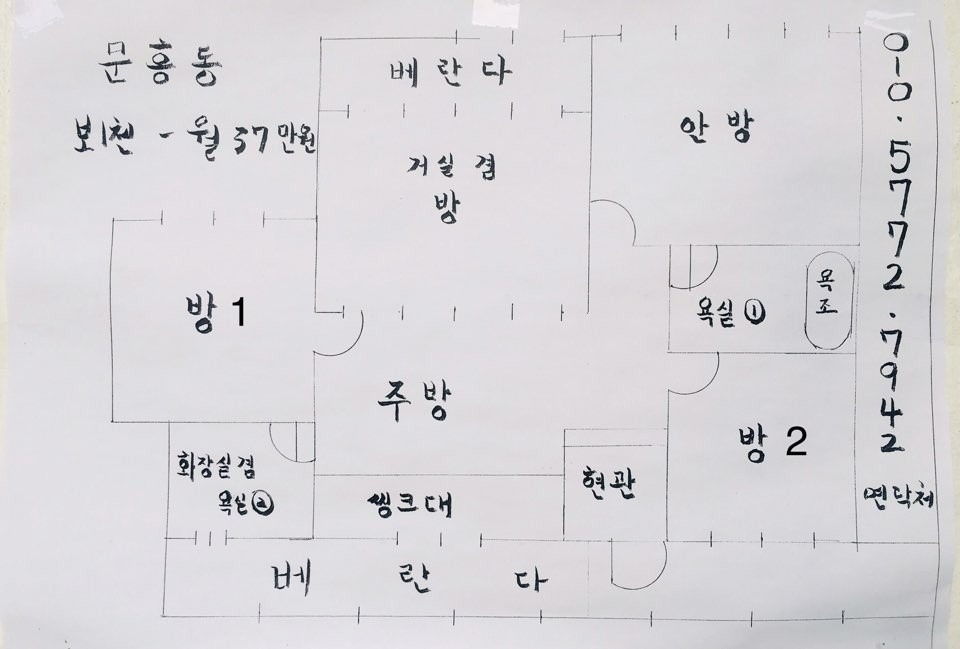 문흥동
보1천 - 월 37만원
베란다
안방
거실 겸
방
방 1
욕실 ①
욕조
주방
방 2
화장실 겸
욕실 ②
씽크대
현관
베란다
010.5772.7942
연락처